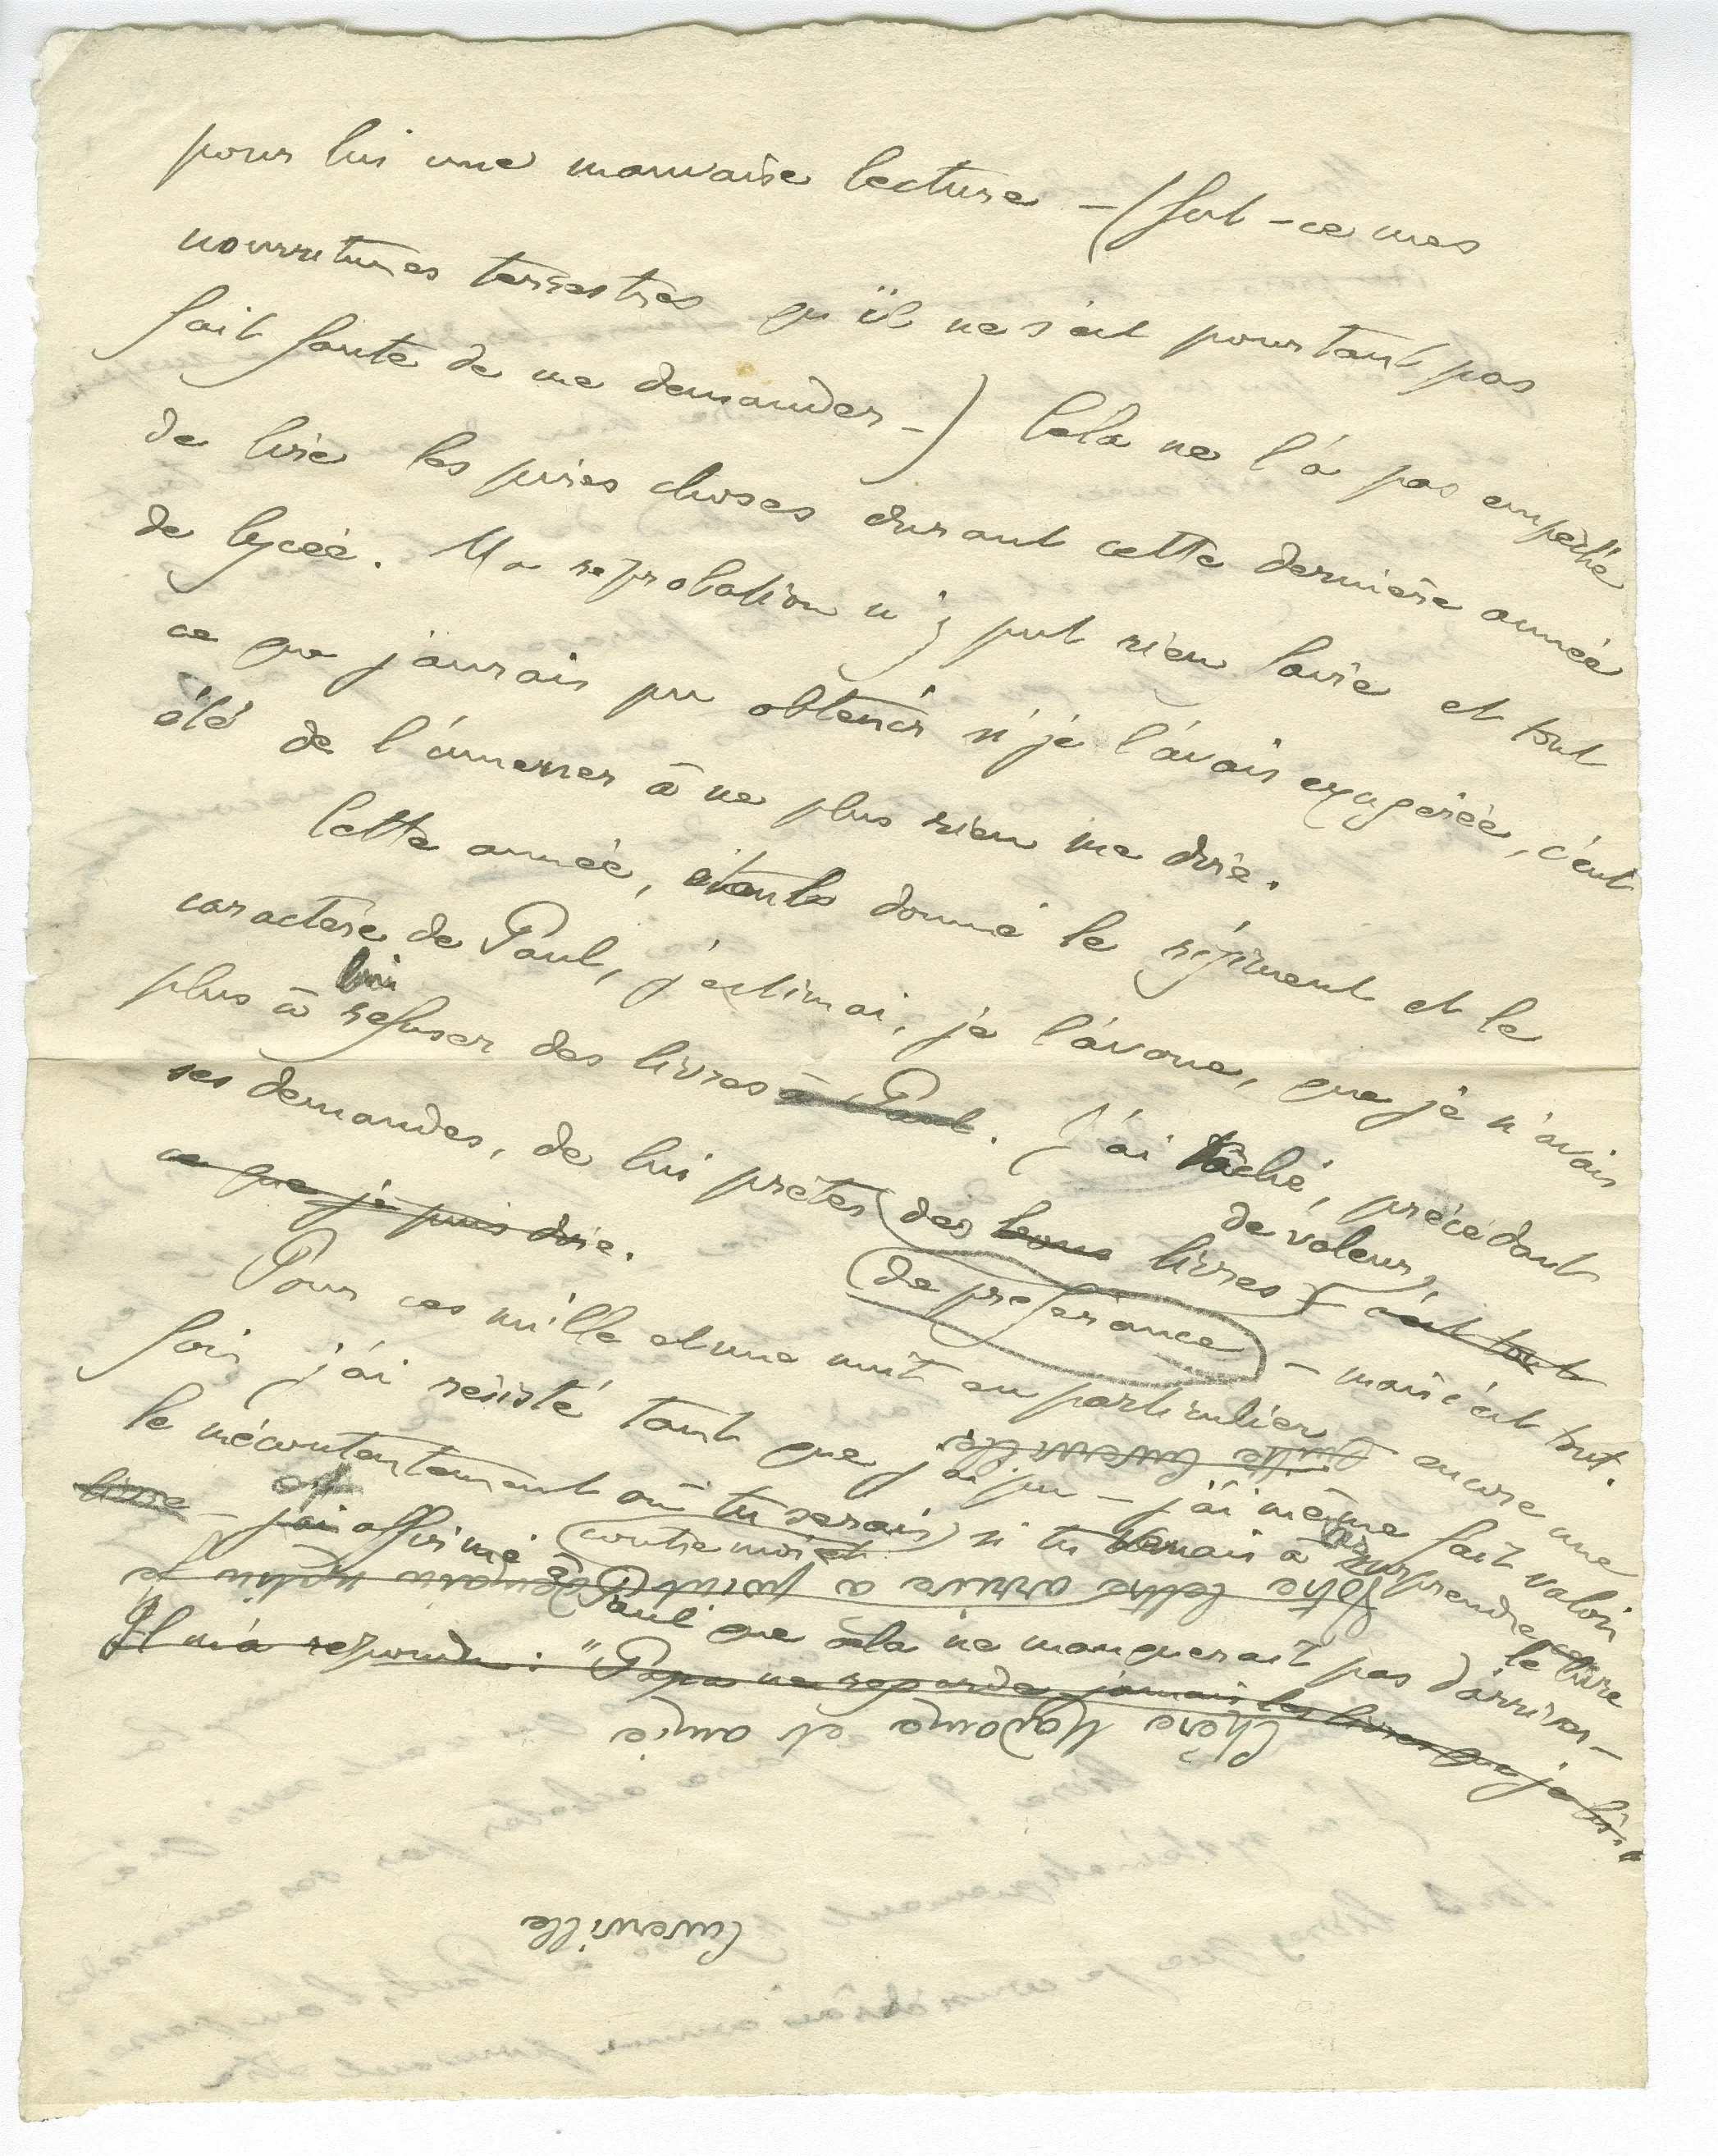 pour lui une mauvaise lecture – (fut-ce mes
nourritures terrestres qu'il ne s'est pourtant pas
fait faute de me demander –) Cela ne l'a pas empêché
de lire les pires choses durant cette dernière année
de lycée. Ma reprobation n'y put rien faire et tout
ce que j'aurais pu obtenir si je l'avais exagérée, c'eut
été de l'amener à ne plus rien me dire.
Cette année, étant donné le régiment et le
caractère de Paul, j'estimai, je l'avoue, que je n'avais
lui
plus à refuser des livres à Paul. J'ai tâché, précédant
ses demandes, de lui prêter des bons livres – c'est tout
de valeur,
ce que je puis dire.
de préférence – mais c'est tout.
Pour ces mille et une nuit en particulier encore une
fois j'ai resisté tant que j'ai pu – j'ai même fait valoir
le mécontentement où tu serais si tu venais à surprendre
contre moi et
le livre
livre – j'ai affirmé à Paul que cela ne manquerait pas d'arriver –
et
Il m'a repondu: "Papa ne regarde jamais les livres que je lis."
Cuverville
Chère Madame et amie
Votre lettre arrive à point
Cuverville